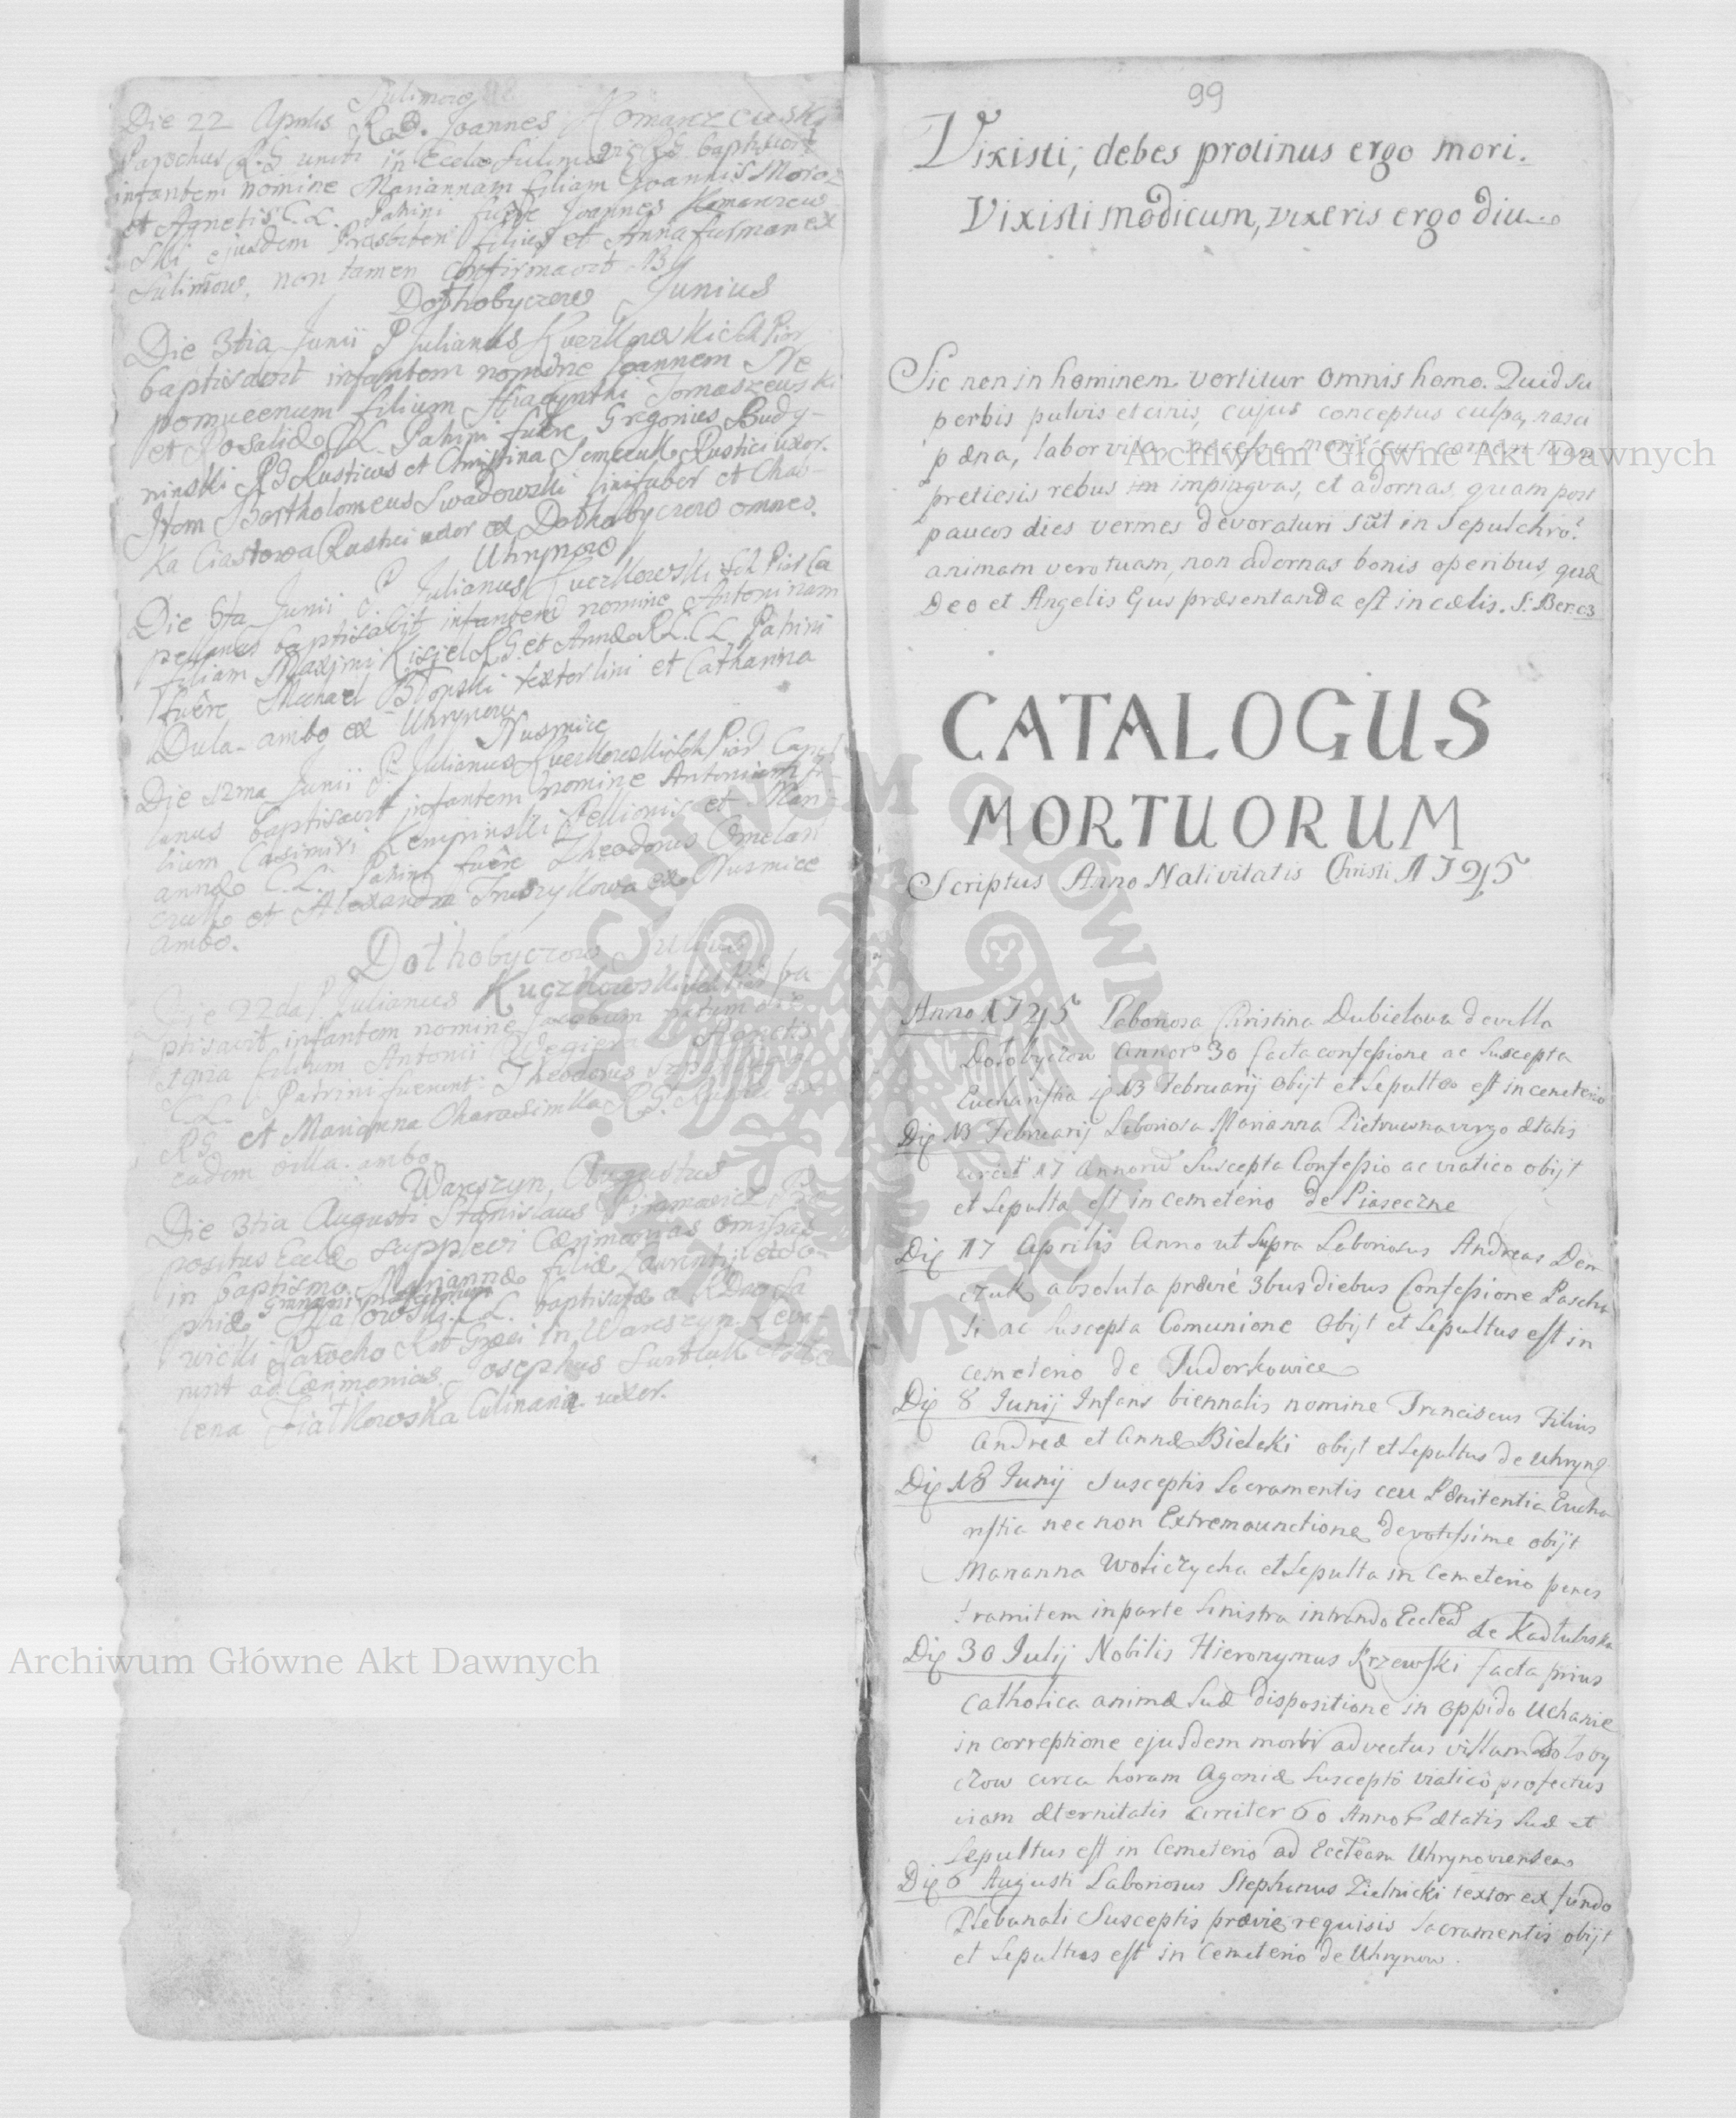 Sulimow
Die 22 Aprilis R.D. Joannes Komarzewski
Parochus R.G. uniti in Eccla Sulimo baptisavit
infantem nomine Mariannam filiam Joannis Moroz
et Agnetis C.L. Patrini fuêre Joannes Komarzews
ski ejusdem Prasbiteri filius et Anna furmanex
Sulimow, non tamen Confirmavit
Dołhobyczow Junius
Die 3tia Junii P. Julianus Kuczkowski Sch Piar
baptisavit infantem nomine Joannem Ne
pomucenum filium Hiacynthi Tomaszewski
et Rosaliæ RL Patrini fuêre Gregorius Budy-
ninski RG Rusticus et Christina Semczuk Rustici uxor.
Item Bartholomeus Swadowski linifaber et Chas-
Ka Ciastowa Rustici uxor ex Dołhobyczow omnes.
Uhrynow
Die 6ta Junii P. Julianus Kuczkowski Sch Piar Ca
pellanus baptisavit infantem nomine Antoninam
filiam Maximi Kisiel RG et Annæ RL. C.L. Patrini
fuêre Michael textor lini et Catharina
Dula ambo ex Uhrynow
Nusmice
Die 12ma Junii P. Julianus Kuczkowski Sch Piar Capel
lanus baptisavit infantem nomine Antonium fi-
lium Casimiri Kempinski Pellionis et Mari
annæ C.L. Patrini fuêre Theodorus Omelan
czuk et Alexandra Truszykowa ex Nusmice
ambo.
Dołhobyczow Julius
Die 22da P. Julianus Kuczkowski Sch Piar ba-
ptisavit infantem nomine Jacobum natum die
filium Antonii Agnetis
C.L. Patrini fuerunt: Theodorus
RG. et Marianna Charasimka R.G. ex
eadem villa ambo.
Waręszyn, Augustus
Die 3tia Augusti Stanislaus Piramowicz Præ
positus Eccla supplevi Cærimonias omissas
in baptismo Mariannæ filiæ Laurentii et So-
phiæ C.L. baptisatæ a RD
wicki Parocho Rit Græci in Waręszyn. Leva-
runt ad Cærimonias Josephus
lena Fiałkowska Culinarii uxor.
99
Vixisti, debes protinus ergo mori.
Vixisti modicum, vixeris ergo diu
Sic non in hominem vertitur omnis homo. Quid su
perbis pulvis et cinis, cujus conceptus culpa, nasci
pœna, labor vita, necesse mori? cur carnem tuam
pretiosis rebus impinguas, et adornas quam post
paucos dies vermes devoraturi sūt in sepulchro?
animam vero tuam, non adornas bonis operibus, quæ
Deo et Angelis Ejus præsentanda est in cœlis. S: Ber:
CATALOGUS
MORTUORUM
Scriptus Anno Nativitatis Christi 1725
Anno 1725 Laboriosa Christina Dubielowa de villa
Dołobyczow annor 30 facta confessione ac suscepta
Eucharistia 13 Februarij obijt et sepulta est in cemeterio
Die 13 Februarij Laboriosa Marianna Pietruwna virgo ætatis
circit 17 annorū suscepta Confessio ac viatico obijt
et sepulta est in cemeterio de Piaseczne
Die 17 Aprilis Anno ut supra Laboriosus Andreas Dem
czuk absoluta prævie 3bus diebus Confessione Pascha
li ac suscepta Comunione obijt et sepultus est in
cemeterio de Tudorkowice
Die 8 Junij Infans biennalis nomine Franciscus Filius
Andreæ et Annæ Bielski obijt et sepultus de Uhryno
Die 18 Junij Susceptis Sacramentis ceu Pœnitentia Eucha
ristia nec non Extremaunctione devotissime obijt
Marianna Woliczycha et sepulta in cemeterio penes
tramitem in parte sinistra intrando Eccleā de Kadłubiska
Die 30 Julij Nobilis Hieronymus Krzewski facta prius
Catholica animæ suæ dispositione in oppido Uchanie
in correptione ejusdem morbi advectus villam Dołoby
czow circa horam Agoniæ susceptô viaticô, profectus
viam æternitatis circiter 60 Annor ætatis suæ et
sepultus est in Cemeterio ad Eccleam Uhrynoviensem
Die 6 Augusti Laboriosus Stephanus Zielnicki textor ex fundo
Plebanali Susceptis prævie requisis sacramentis obijt
et sepultus est in cemeterio de Uhrynow.
Archiwum Główne Akt Dawnych
Archiwum Główne Akt Dawnych
ARCHIWUM GŁÓWNE AKT DAWNYCH